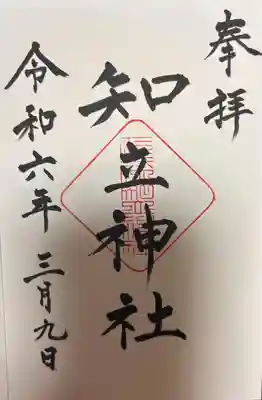 奉拝
知立神社
令和六年 三月九日